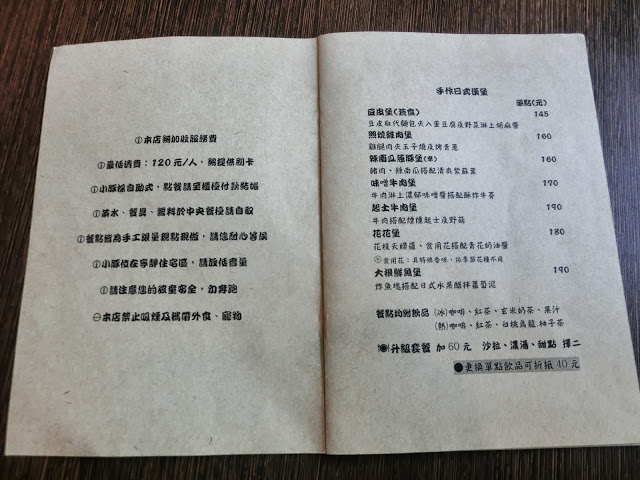 ①本店無加收服務費
①最低消費：120元/人，無提供刷卡
①小豚採自助式，點餐請至櫃檯付款點餐
①茶水、餐具、醬料於中央餐檯請自取
①餐點皆為手工限量現點現做，請您耐心等候
①小豚位在寧靜住宅區，請放低音量
①請注意您的孩童安全，勿奔跑
⊖本店禁止吸煙及攜帶外食、寵物
手作日式漢堡
單點(元)
豆皮堡(蔬食) 145
豆皮取代麵包夾入蛋豆腐及野菜淋上胡麻醬
照燒雞肉堡 160
雞腿肉夾玉子燒及烤青蔥
辣南瓜豬豚堡(辛) 160
豬肉、辣南瓜搭配清爽紫蘇葉
味噌牛肉堡 190
牛肉淋上濃郁味噌醬搭配酥炸牛蒡
起士牛肉堡 190
牛肉搭配煙燻起士及野菇
花花堡 180
花枝天婦羅、食用花搭配青花奶油醬
食用花：具特殊香味，依季節花種不同
大根鮮魚堡 190
炸魚塊搭配日式水果醋拌蘿蔔泥
餐點均附飲品 (冰)咖啡、紅茶、玄米奶茶、果汁
(熱)咖啡、紅茶、白桃烏龍 柚子茶
升級套餐 加60元 沙拉、濃湯、甜點 擇二
●更換單點飲品可折抵40元